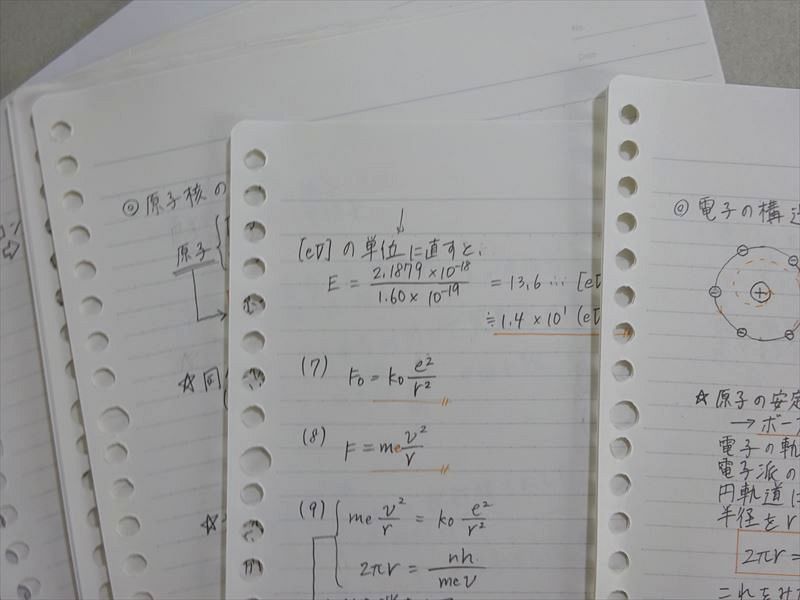 ◎原子核の
原子
☆同
☆
[eV] の単位に直すと、
E = 2.1879×10⁻¹⁸ / 1.60×10⁻¹⁹ = 13.6… [eV
≒ 1.4×10¹ (eV
(7) F₀ = k₀ e²/r²
(8) F = me v²/r
(9) me v²/r = k₀ e²/r²
2πr = nh/mev
◎電子の構造
☆原子の安定
→ボーア
電子の軌
電子派の
円軌道に
半径をr
2πr =
これをみ